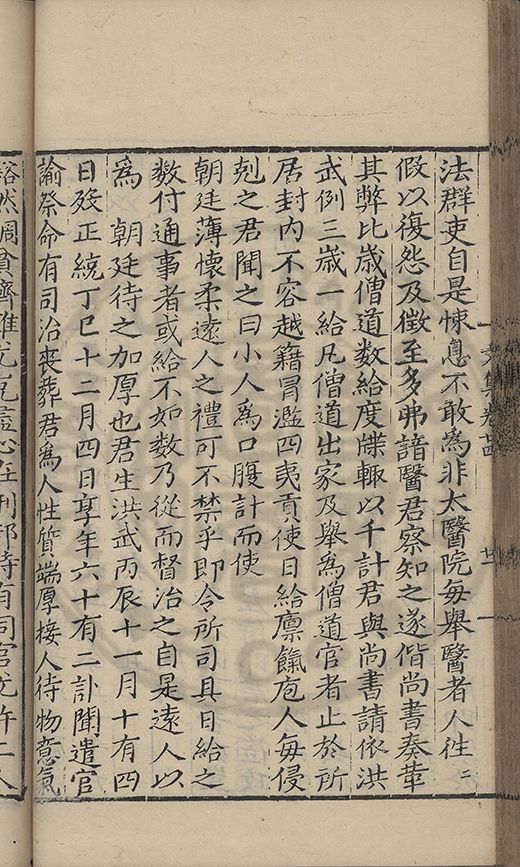 法群吏自是悚息不敢為非太醫院每舉醫者人往二
假以復怨及徵至多弗諳醫君察知之遂偕尚書奏革
其弊比歲僧道数給度牒輙以千計君與尚書請依洪
武例三歲一給凡僧道出家及舉為僧道官者止於所
居封内不容越籍冒濫四夷貢使日給廪餼庖人每侵
尅之君聞之曰小人為口腹計而使
朝廷薄懷柔遠人之禮可不禁乎即令所司具日給之
数付通事者或給不如数乃從而督治之自是遠人以
為　朝廷待之加厚也君生洪武丙辰十一月十有四
日殁正統丁巳十二月四日享年六十有二訃聞遣官
諭祭命有司治丧葬君為人性質端厚接人待物意氣
豁然周貧濟難尤
文集卷十四